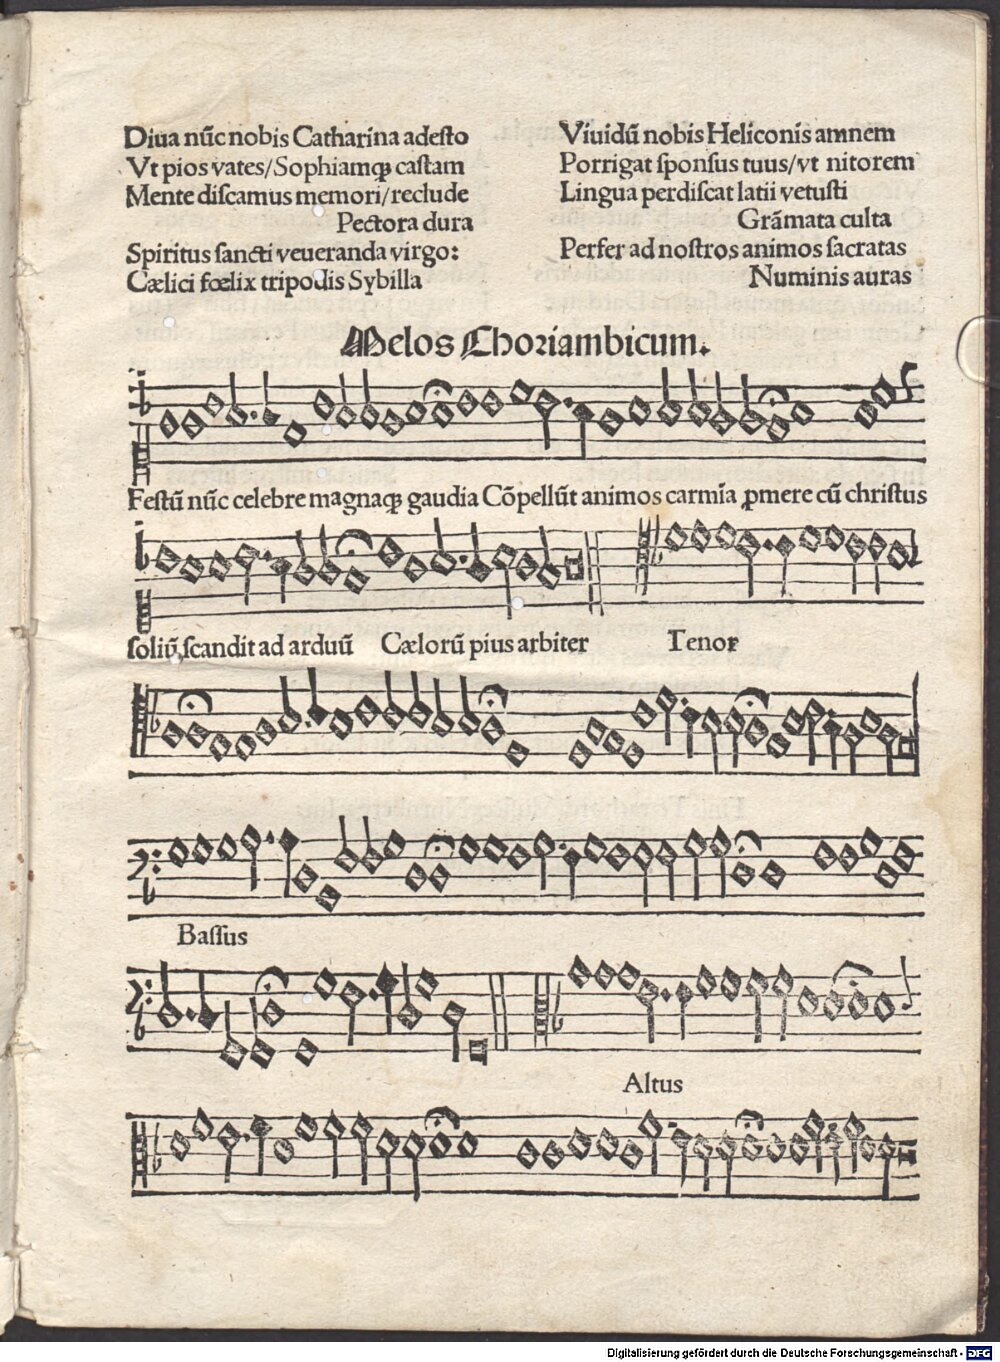 Diua nūc nobis Catharina adesto
Vt pios vates/Sophiamqꝫ castam
Mente discamus memori/reclude
Pectora dura
Spiritus sancti veueranda virgo:
Cælici fœlix tripodis Sybilla
Viuidū nobis Heliconis amnem
Porrigat sponsus tuus/vt nitorem
Lingua perdiscat latii vetusti
Grāmata culta
Perfer ad nostros animos sacratas
Numinis auras
Melos Choriambicum.
Festū nūc celebre magnaqꝫ gaudia Cōpellūt animos carmīa ꝓmere cū christus
soliū scandit ad arduū Cælorū pius arbiter Tenor
Bassus
Altus
Digitalisierung gefördert durch die Deutsche Forschungsgemeinschaft - DFG